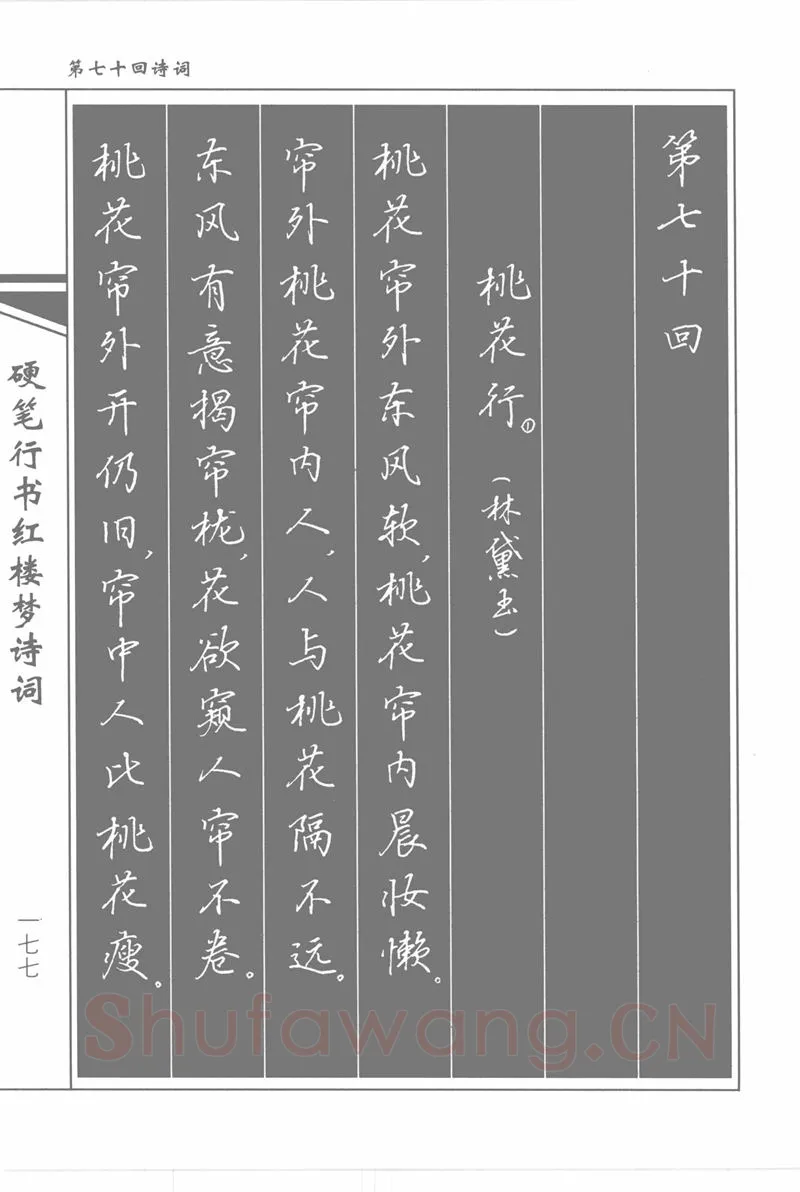 第七十回诗词
第七十回
桃花行。①
(林黛玉)
桃花帘外东风软,桃花帘内晨妆懒。
帘外桃花帘内人,人与桃花隔不远。
东风有意揭帘栊,花欲窥人帘不卷。
桃花帘外开仍旧,帘中人比桃花瘦。
硬笔行书红楼梦诗词
一七七
Shufawang.CN